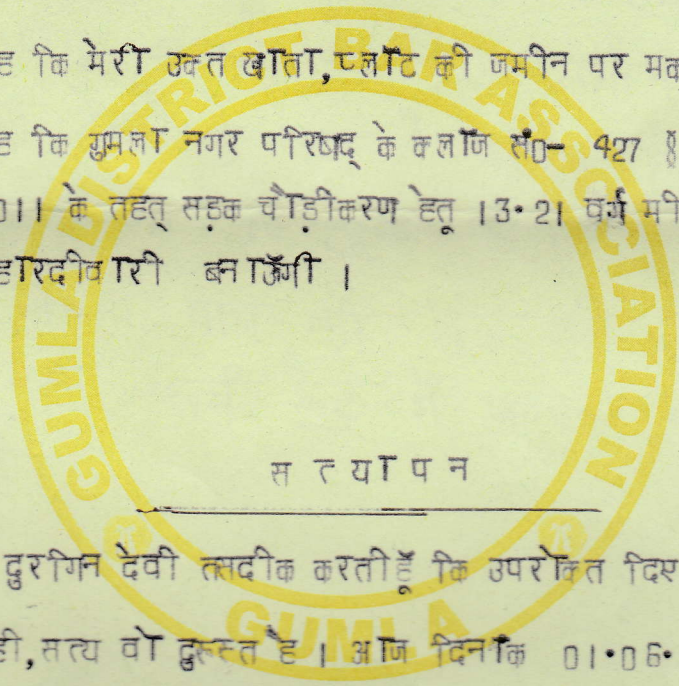 ह कि मेरी उक्त खाता,प्लॉट की जमीन पर मक
ह कि गुमला नगर परिषद् के क्लॉज सं0- 427
011 के तहत् सड़क चौड़ीकरण हेतू 13.21 वर्ग मी
हारदीवारी बनाऊँगी ।
स त्या प न
दुरगिन देवी तसदीक करती हूँ कि उपरोक्त दिए
ही,सत्य वो दुरूस्त है । आज दिनाँक 01.06.
GUMLA DISTRICT BAR ASSOCIATION
GUMLA